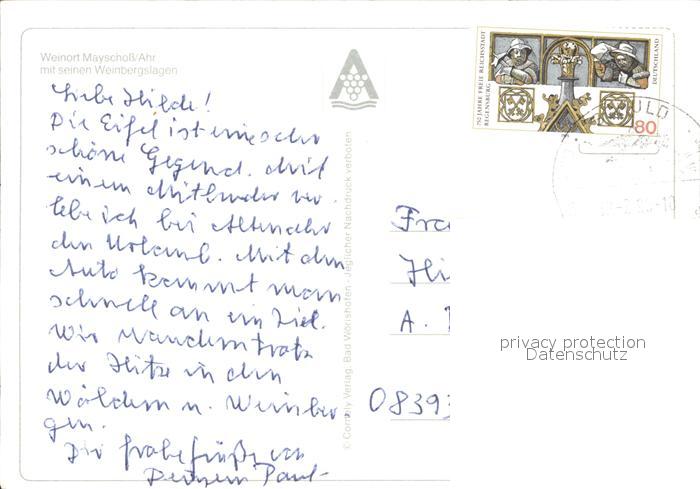 Weinort Mayschoß/Ahr
mit seinen Weinbergslagen
Liebe Hilde!
Die Eifel ist eine sehr
schöne Gegend. Mit
einem Mitbruder ver-
lebe ich bei Altenahr
den Urlaub. Mit dem
Auto kommt man
schnell an ein Ziel.
Wir wandern trotz
der Hitze in den
Wäldern u. Weinber
gen.
Dir frohe Grüße von
Deinem Paul
© Cornely Verlag, Bad Wörishofen · Jeglicher Nachdruck verboten
750 JAHRE FREIE REICHSSTADT
REGENSBURG
DEUTSCHLAND
80
Hi
A.
0839
privacy protection
Datenschutz